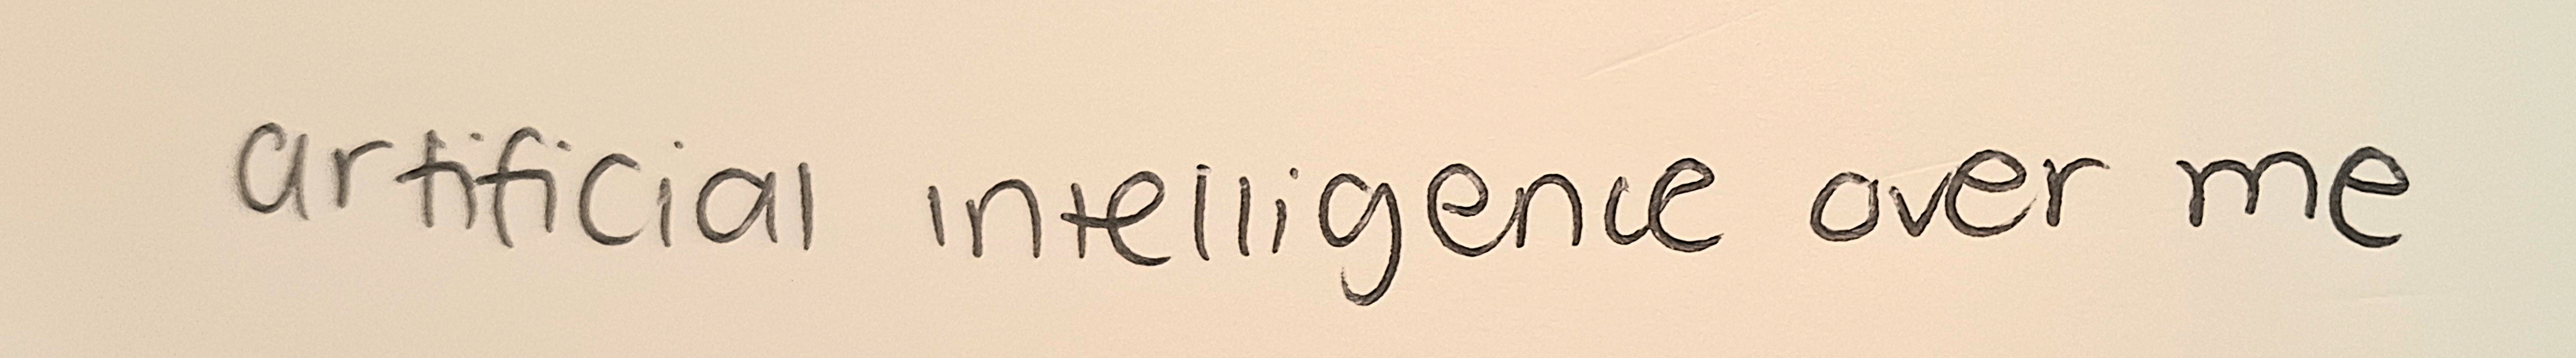 artificial intelligence over me